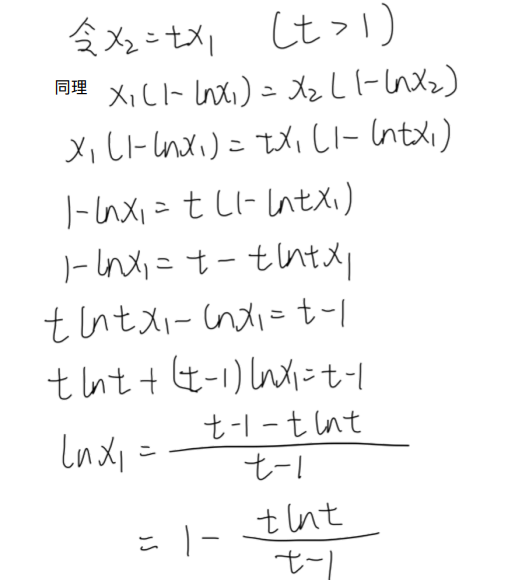 令x₂=tx₁ (t>1)
同理 x₁(1-lnx₁)=x₂(1-lnx₂)
x₁(1-lnx₁)=tx₁(1-lntx₁)
1-lnx₁=t(1-lntx₁)
1-lnx₁=t-tlntx₁
tlntx₁-lnx₁=t-1
tlnt+(t-1)lnx₁=t-1
lnx₁=\frac{t-1-tlnt}{t-1}
=1-\frac{tlnt}{t-1}